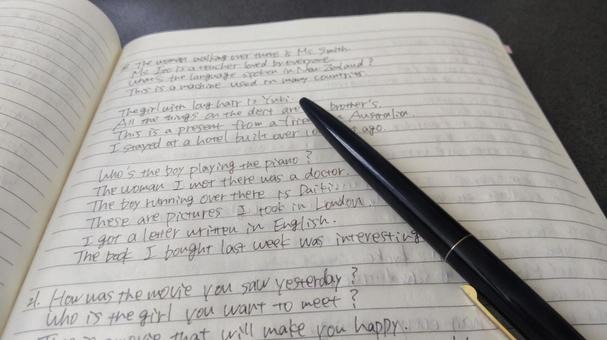 * The woman walking over there is Ms. Smith.
Ms. Ito is a teacher loved by everyone.
What's the language spoken in New Zealand?
This is a machine used in many countries.
The girl with long hair is Yuki.
All the things on the desk are brother's.
This is a present from a Australia.
I stayed at a hotel built over ago.
Who's the boy playing the piano?
The woman I met there was a doctor.
The boy running over there is
These are pictures I took in London.
I got a letter written in English.
The book I bought last week was interesting
How was the movie you saw yesterday?
Who is the girl you want to meet?
that will make you happy.